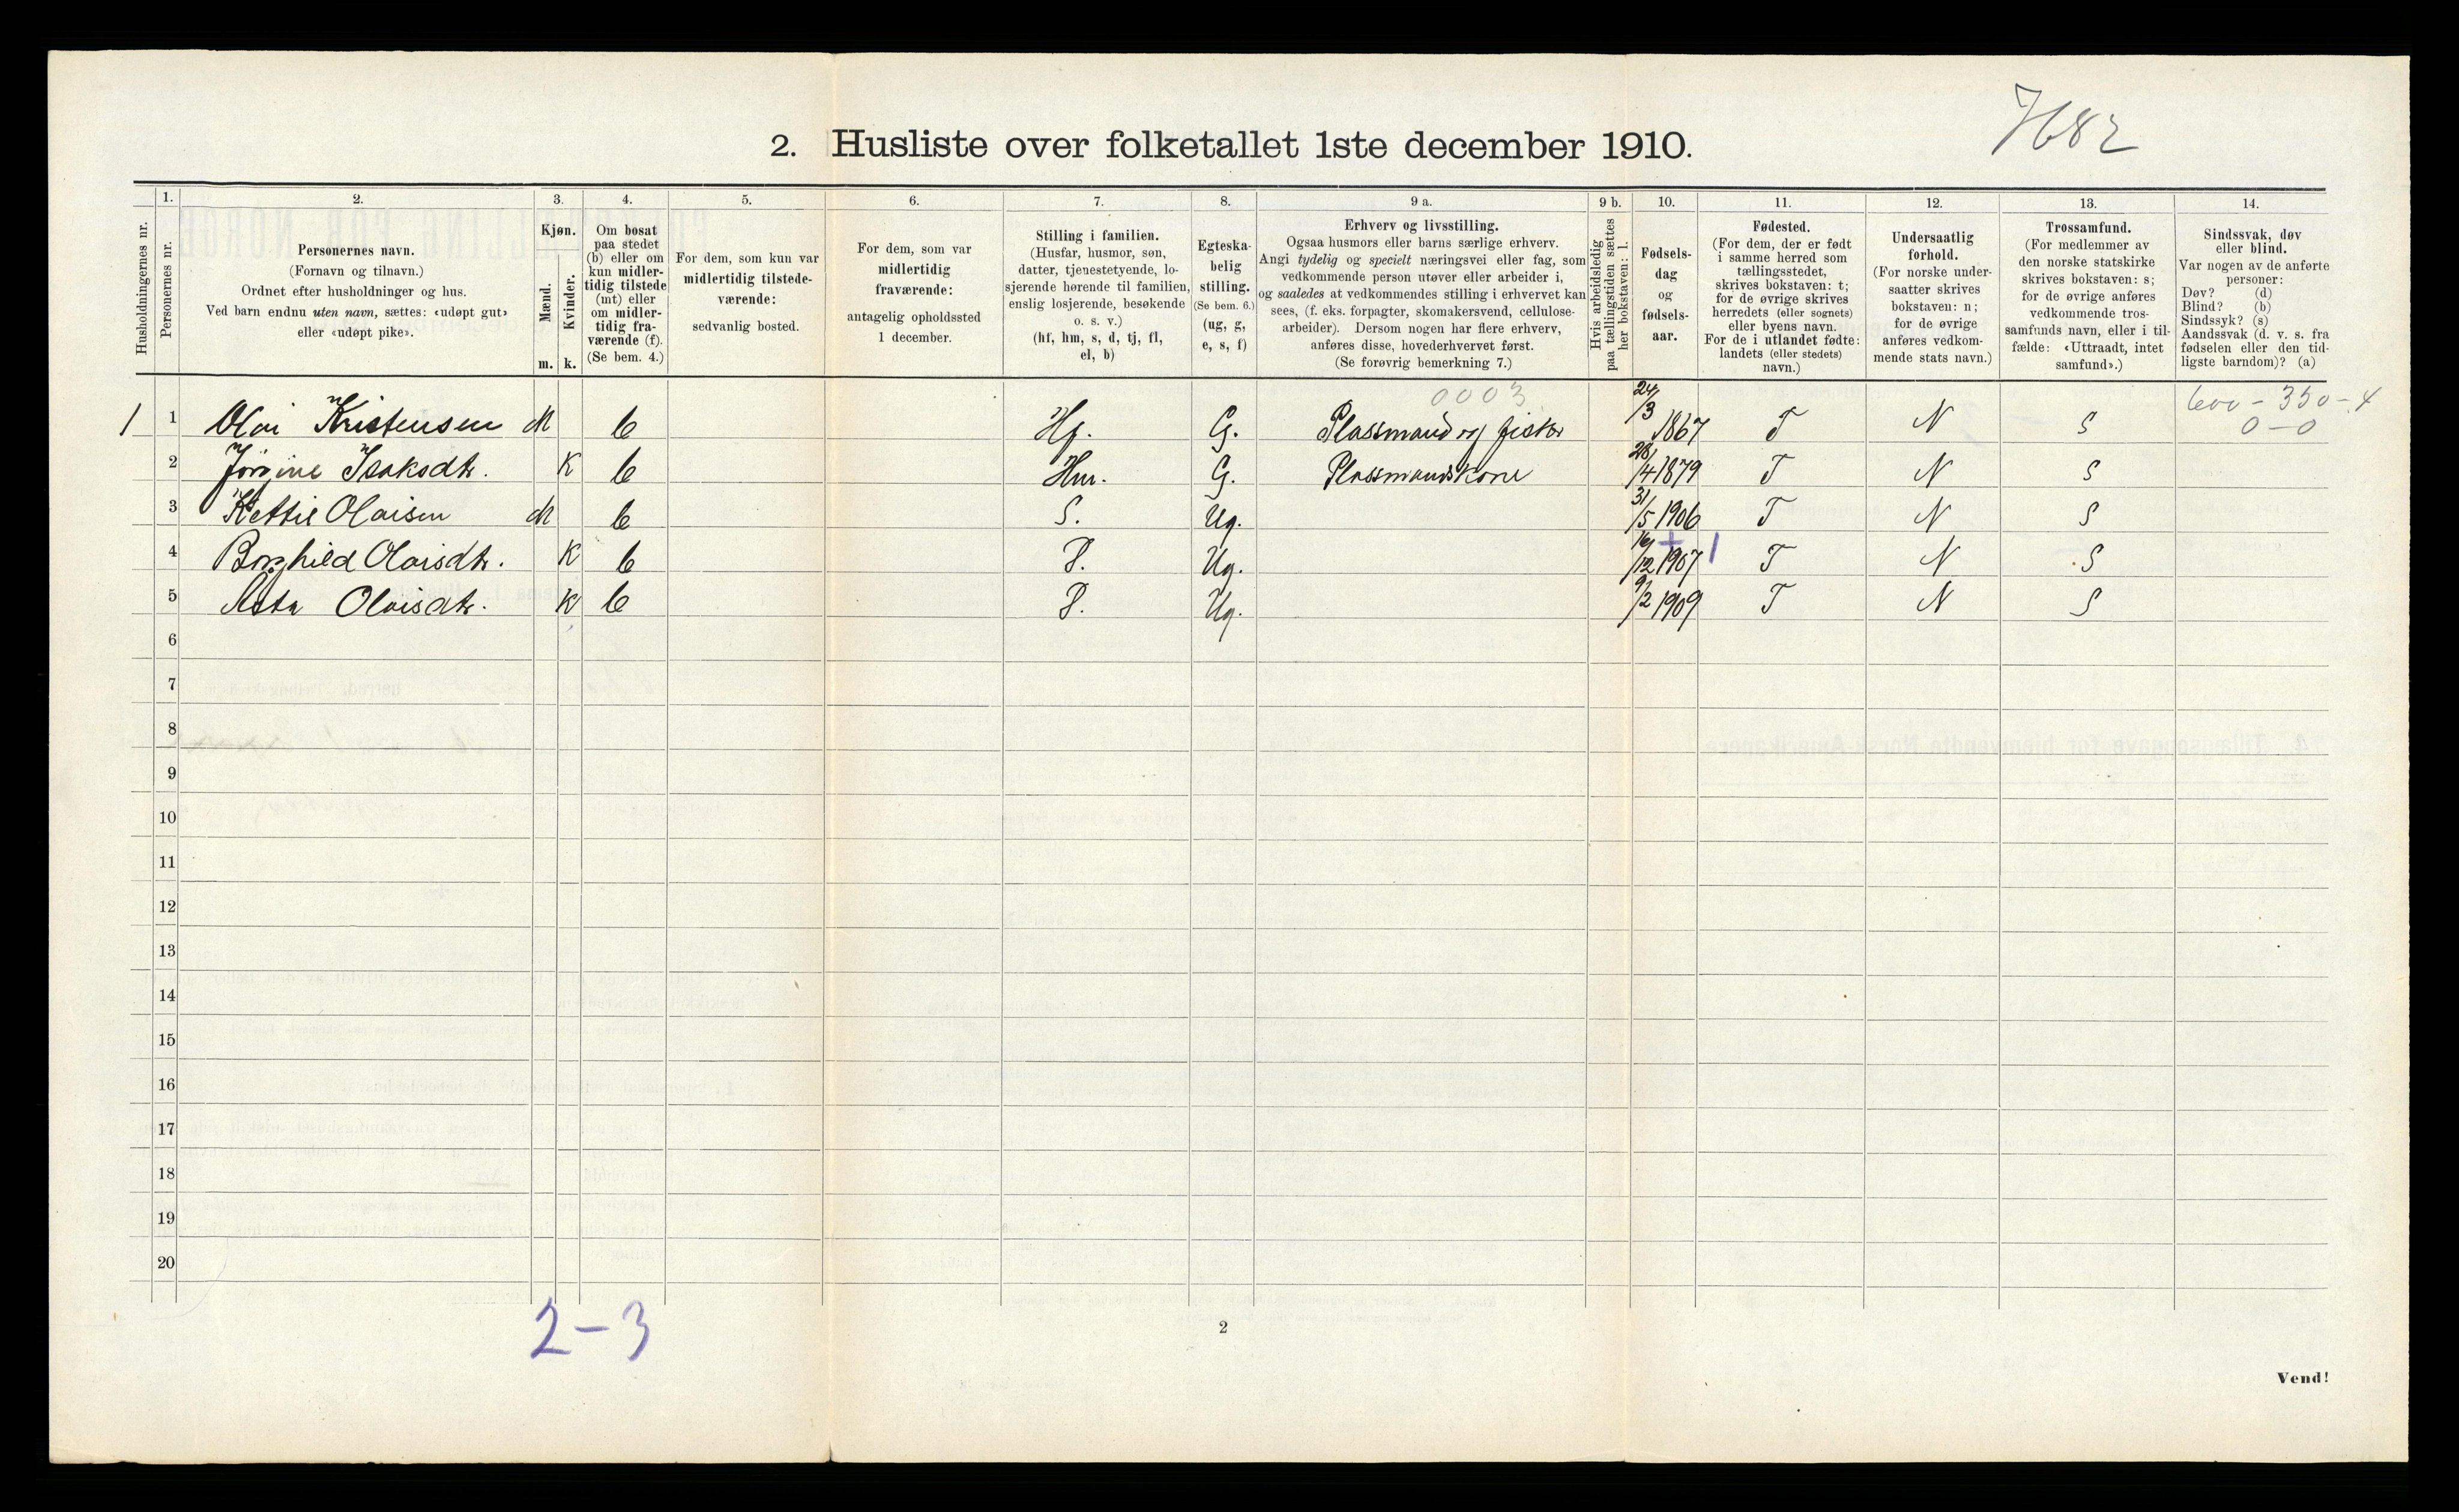 7682
2. Husliste over folketallet 1ste december 1910.
Husholdningernes nr.
1.
Personernes nr.
2.
Personernes navn.
(Fornavn og tilnavn.)
Ordnet efter husholdninger og hus.
Ved barn endnu uten navn, sættes: «udøpt gut»
eller «udøpt pike».
3.
Kjøn.
Mænd.
m.
Kvinder.
k.
4.
Om bosat
paa stedet
(b) eller om
kun midler-
tidig tilstede
(mt) eller
om midler-
tidig fra-
værende (f).
(Se bem. 4.)
5.
For dem, som kun var
midlertidig tilstede-
værende:
sedvanlig bosted.
6.
For dem, som var
midlertidig
fraværende:
antagelig opholdssted
1 december.
7.
Stilling i familien.
(Husfar, husmor, søn,
datter, tjenestetyende, lo-
sjerende hørende til familien,
enslig losjerende, besøkende
o. s. v.)
(hf, hm, s, d, tj, fl,
el, b)
8.
Egteska-
belig
stilling.
(Se bem. 6.)
(ug, g,
e, s, f)
9 a.
Erhverv og livsstilling.
Ogsaa husmors eller barns særlige erhverv.
Angi tydelig og specielt næringsvei eller fag, som
vedkommende person utøver eller arbeider i,
og saaledes at vedkommendes stilling i erhvervet kan
sees, (f. eks. forpagter, skomakersvend, cellulose-
arbeider). Dersom nogen har flere erhverv,
anføres disse, hovederhvervet først.
(Se forøvrig bemerkning 7.)
9 b.
Hvis arbeidsledig
paa tællingstiden sættes
her bokstaven: l.
10.
Fødsels-
dag
og
fødsels-
aar.
11.
Fødested.
(For dem, der er født
i samme herred som
tællingsstedet,
skrives bokstaven: t;
for de øvrige skrives
herredets (eller sognets)
eller byens navn.
For de i utlandet fødte:
landets (eller stedets)
navn.)
12.
Undersaatlig
forhold.
(For norske under-
saatter skrives
bokstaven: n;
for de øvrige
anføres vedkom-
mende stats navn.)
13.
Trossamfund.
(For medlemmer av
den norske statskirke
skrives bokstaven: s;
for de øvrige anføres
vedkommende tros-
samfunds navn, eller i til-
fælde: «Uttraadt, intet
samfund».)
14.
Sindssvak, døv
eller blind.
Var nogen av de anførte
personer:
Døv? (d)
Blind? (b)
Sindssyk? (s)
Aandssvak (d. v. s. fra
fødselen eller den tid-
ligste barndom)? (a)
0003
600 - 350 - 4
0 - 0
1 1 Olai Kristensen M b Hf. G. Plassmand og fisker 24/3 1867 T N S
2 Jörgine Isaksdtr. K b Hm. G. Plassmandskone 28/4 1879 T N S
3 Kettil Olaisen M b S. Ug. 31/5 1906 T N S
4 Borghild Olaisdtr. K b D. Ug. 16/12 1907 T N S
5 Asta Olaisdtr. K b D. Ug. 9/2 1909 T N S
6
7
8
9
10
11
12
13
14
15
16
17
18
19
20
2-3
2
Vend!